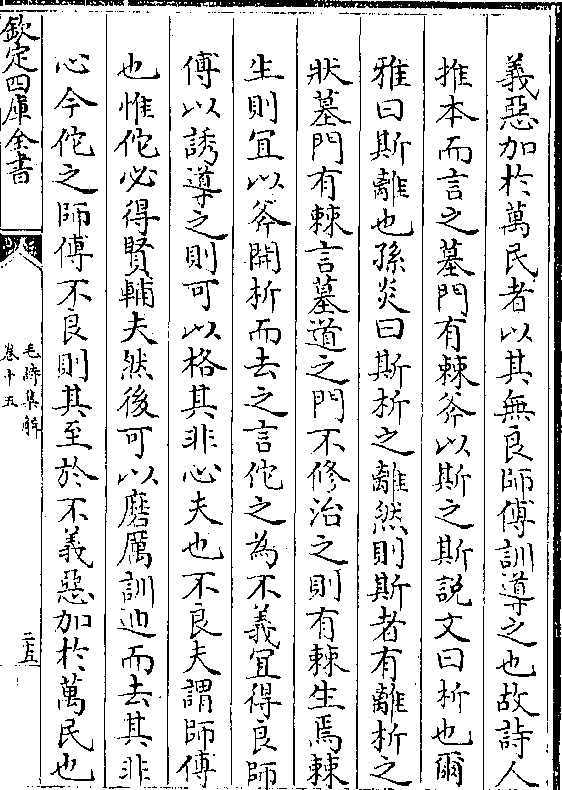 義惡加於萬民者以其無良師傅訓導之也故詩人
推本而言之墓門有棘斧以斯之斯說文曰析也爾
雅曰斯離也孫炎曰斯析之離然則斯者有離析之
狀墓門有棘言墓道之門不修治之則有棘生焉棘
生則宜以斧開析而去之言佗之為不義宜得良師
傅以誘導之則可以格其非心夫也不良夫謂師傅
也惟佗必得賢輔夫然後可以磨厲訓迪而去其非
心今佗之師傅不良則其至於不義惡加於萬民也
欽定四庫全書
毛詩集解
卷十五
二五